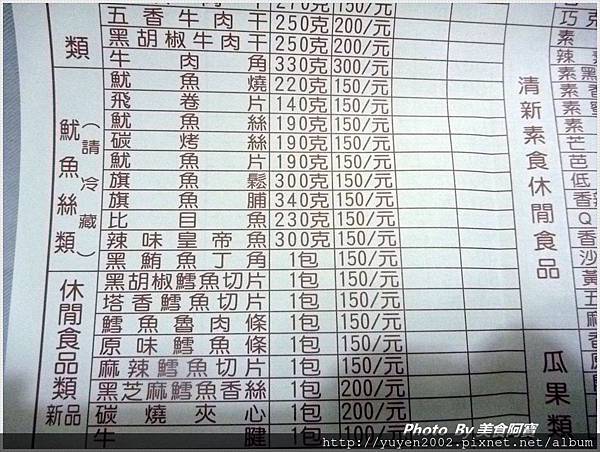 270克 150/元
五香牛肉干 250克 200/元
黑胡椒牛肉干 250克 200/元
牛肉角 330克 300/元
類
魷魚燒 220克 150/元
飛卷片 140克 150/元
魷魚絲 190克 150/元
碳烤絲 190克 150/元
魷魚片 190克 150/元
旗魚鬆 300克 150/元
旗魚脯 340克 150/元
比目魚 230克 150/元
辣味皇帝魚 300克 150/元
魷魚絲類
(請冷藏)
黑鮪魚丁角 1包 150/元
黑胡椒鱈魚切片 1包 150/元
塔香鱈魚切片 1包 150/元
鱈魚魯肉條 1包 150/元
原味鱈魚條 1包 150/元
麻辣鱈魚切片 1包 150/元
黑芝麻鱈魚香絲 1包 200/元
碳燒夾心 1包 200/元
牛腱 1包 100/元
休閒食品類
新品
清新素食休閒食品
巧克
素
辣
素黑
素香
素蜜
素
芒
芭
低
香
Q
香
沙
黃
五
麻
瓜果類
Photo By 美食阿寶
http://yuyen2002.pixnet.net/album